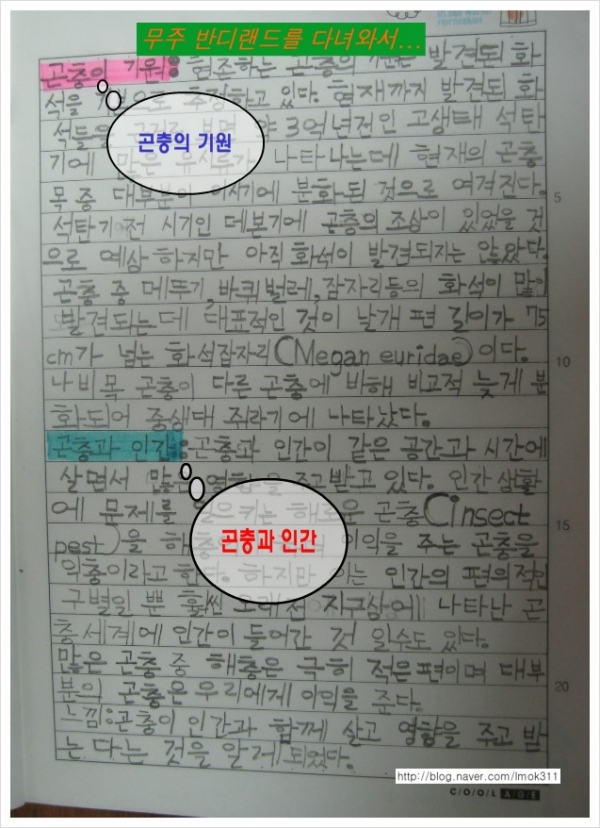 무주 반디랜드를 다녀와서...
곤충의 기원: 현존하는 곤충의 기원은 발견된 화
석을 추정하고 있다. 현재까지 발견된 화
석들을 3억년전인 고생대 석탄
기에 많은 나타나는데 현재의 곤충
곤충의 기원
목 중 대부분이 이시기에 분화된 것으로 여겨진다.
5
석탄기전 시기인 데본기에 곤충의 조상이 있었을 것
으로 예상 하지만 아직 화석이 발견되지는 않았다.
곤충 중 메뚜기, 바퀴벌레, 잠자리등의 화석이 많이
발견되는데 대표적인 것이 날개 편 길이가 75
cm가 넘는 화석잠자리(Megan euridae)이다.
10
나비목 곤충이 다른 곤충에 비해 비교적 늦게 분
화되어 중생대 쥐라기에 나타났다.
곤충과 인간:곤충과 인간이 같은 공간과 시간에
살면서 많은 영향을 주고받고 있다. 인간 생활
에 문제를 일으키는 해로운 곤충(insect
15
pest)을 이익을 주는 곤충을
곤충과 인간
익충이라고 한다. 하지만 이는 인간의 편의적인
구별일 뿐 훨씬 오래전 지구상에 나타난 곤
충세계에 인간이 들어간 것 일수도 있다.
많은 곤충 중 해충은 극히 적은편이며 대부
20
분의 곤충은 우리에게 이익을 준다.
느낌:곤충이 인간과 함께 살고 영향을 주고 받
는 다는 것을 알게 되었다.
http://blog.naver.com/lmok311
COOL AGE